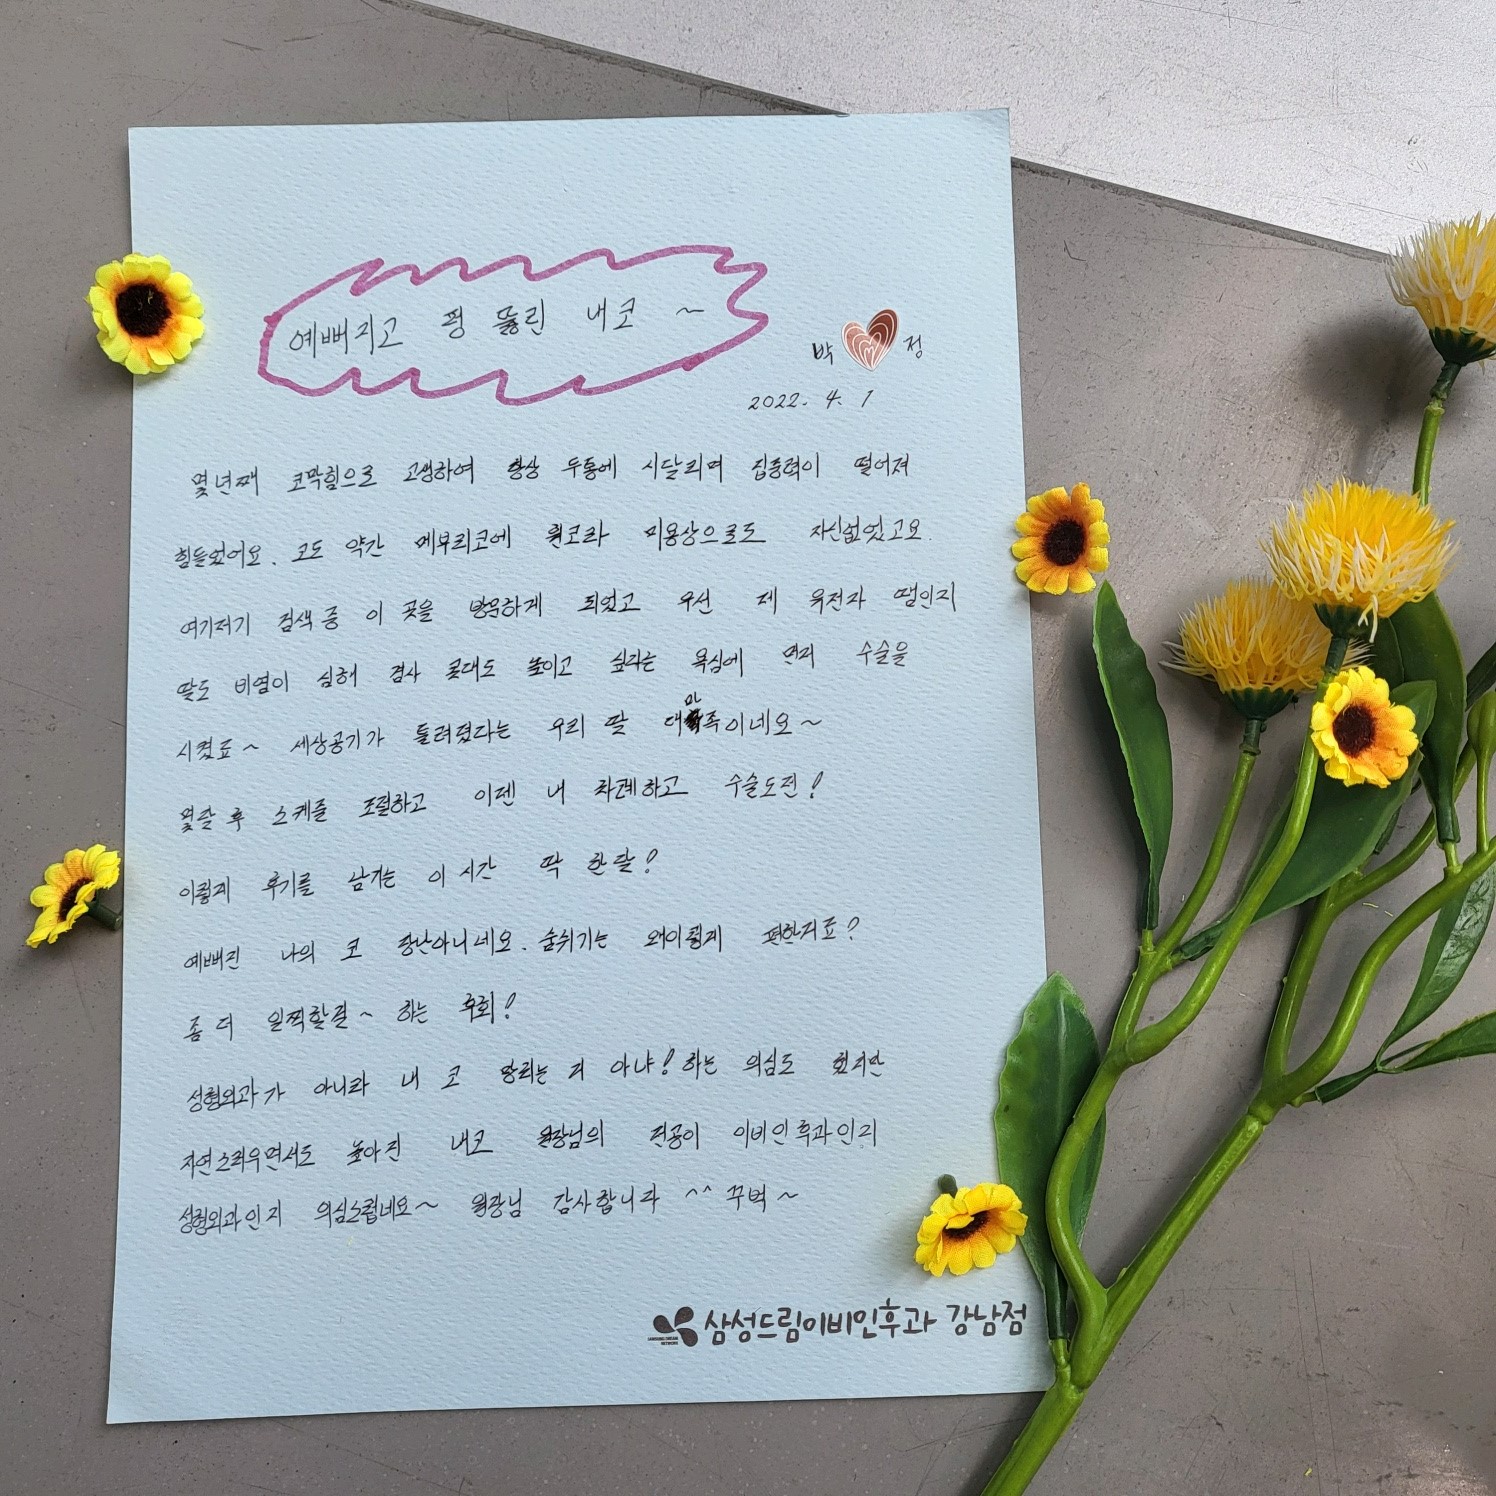 예뻐지고 펑 뚫린 내코 ~
박 정
2022. 4. 1
몇년째 코막힘으로 고생하여 항상 두통에 시달리며 집중력이 떨어져
힘들었어요. 코도 약간 메부리코에 휜코라 미용상으로도 자신없었고요.
여기저기 검색중 이 곳을 방문하게 되었고 우선 제 유전자 땜인지
딸도 비염이 심해 겸사 콧대도 높이고 싶다는 욕심에 먼저 수술을
시켰죠~ 세상공기가 틀려졌다는 우리 딸 대만족이네요~
몇달 후 스케줄 조절하고 이젠 내 차례하고 수술도전!
이렇게 후기를 남기는 이 시간 딱 한달!
예뻐진 나의 코 장난아니네요. 숨쉬기는 왜이렇게 편한거죠?
좀 더 일찍할걸~ 하는 후회!
성형외과가 아니라 내 코 망치는 거 아냐! 하는 의심도 했지만
자연스러우면서도 높아진 내코 원장님의 전공이 이비인후과인지
성형외과인지 의심스럽네요~ 원장님 감사합니다 ^^ 꾸벅~
삼성드림이비인후과 강남점
SAMSUNG DREAM
NETWORK